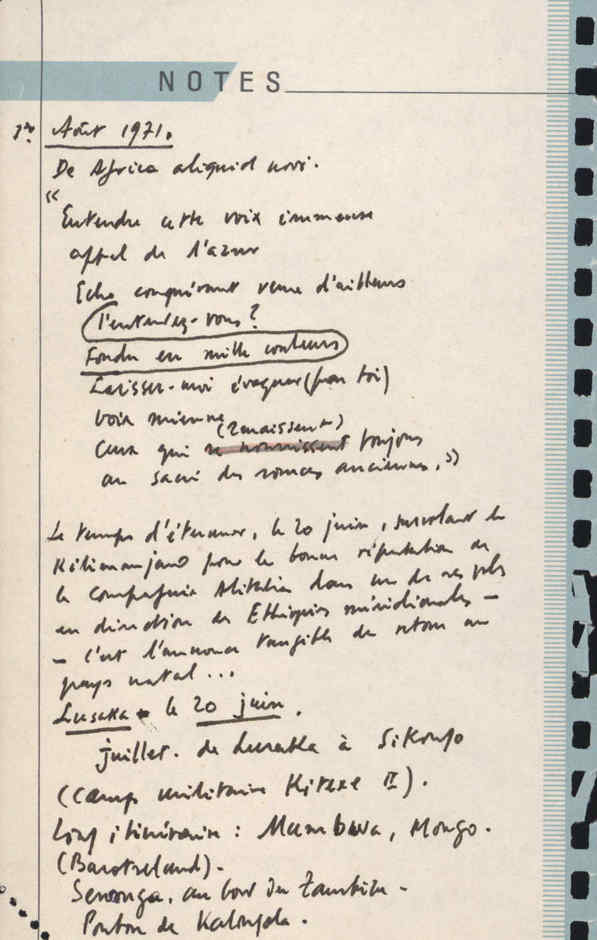 NOTES
1er Août 1971.
De Africa aliquid novi.
"Entendre cette voix immense
appel de l'azur
Echo conquérant venu d'ailleurs
l'entendez-vous?
Fondu en mille couleurs
Laissez-moi évoquer (pour toi)
voix mienne
(renaissent)
ceux qui se nourrissent toujours
au sacré des sources anciennes."
Le temps d'éternuer, le 20 juin, survolant le
Kilimanjaro pour la bonne réputation de
la compagnie Alitalia dans un de ses vols
en direction des Ethiopies méridionales –
– c'est l'annonce tangible du retour au
pays natal...
Lusaka le 20 juin.
juillet. de Lusaka à Sikongo
(camp militaire Kitexe II).
Long itinéraire: Mumbwa, Mongo.
(Barotseland).
Senanga, au bord du Zambèze -
Ponton de Kalongola.